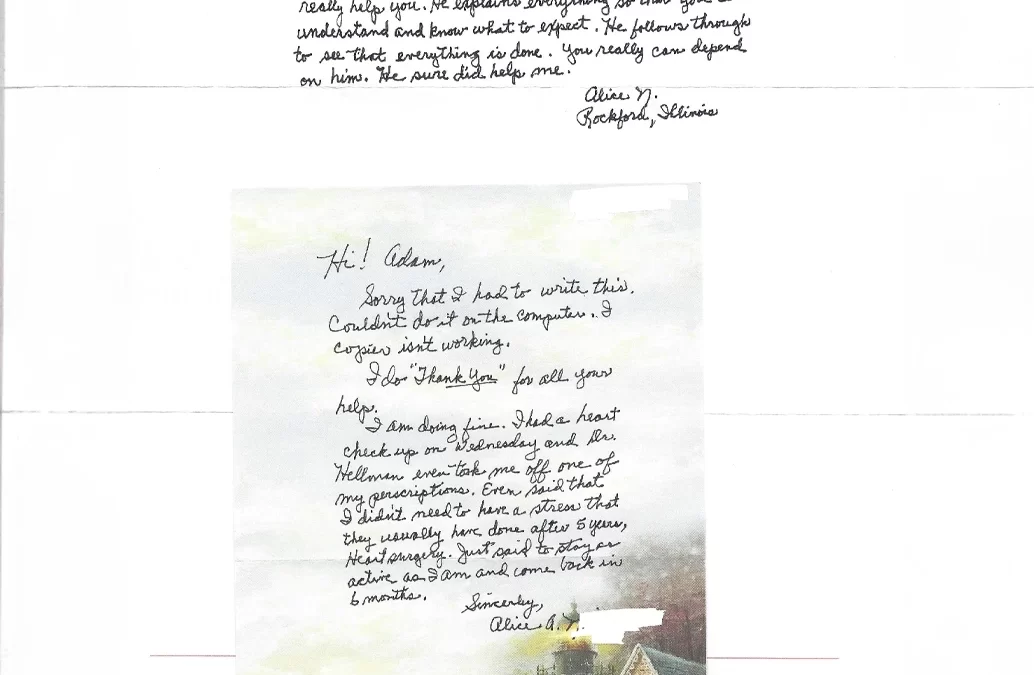 really help you. He explains everything so that you
understand and know what to expect. He follows through
to see that everything is done. You really can depend
on him. He sure did help me.
Alice N.
Rockford, Illinois
Hi! Adam,
Sorry that I had to write this.
Couldn't do it on the computer. I
copier isn't working.
I do "Thank You" for all your
help.
I am doing fine. I had a heart
check up on Wednesday and Dr.
Hellman even took me off one of
my perscriptions. Even said that
I didn't need to have a stress that
they usually have done after 5 years,
Heart surgery. Just said to stay as
active as I am and come back in
6 months.
Sincerley,
Alice A.